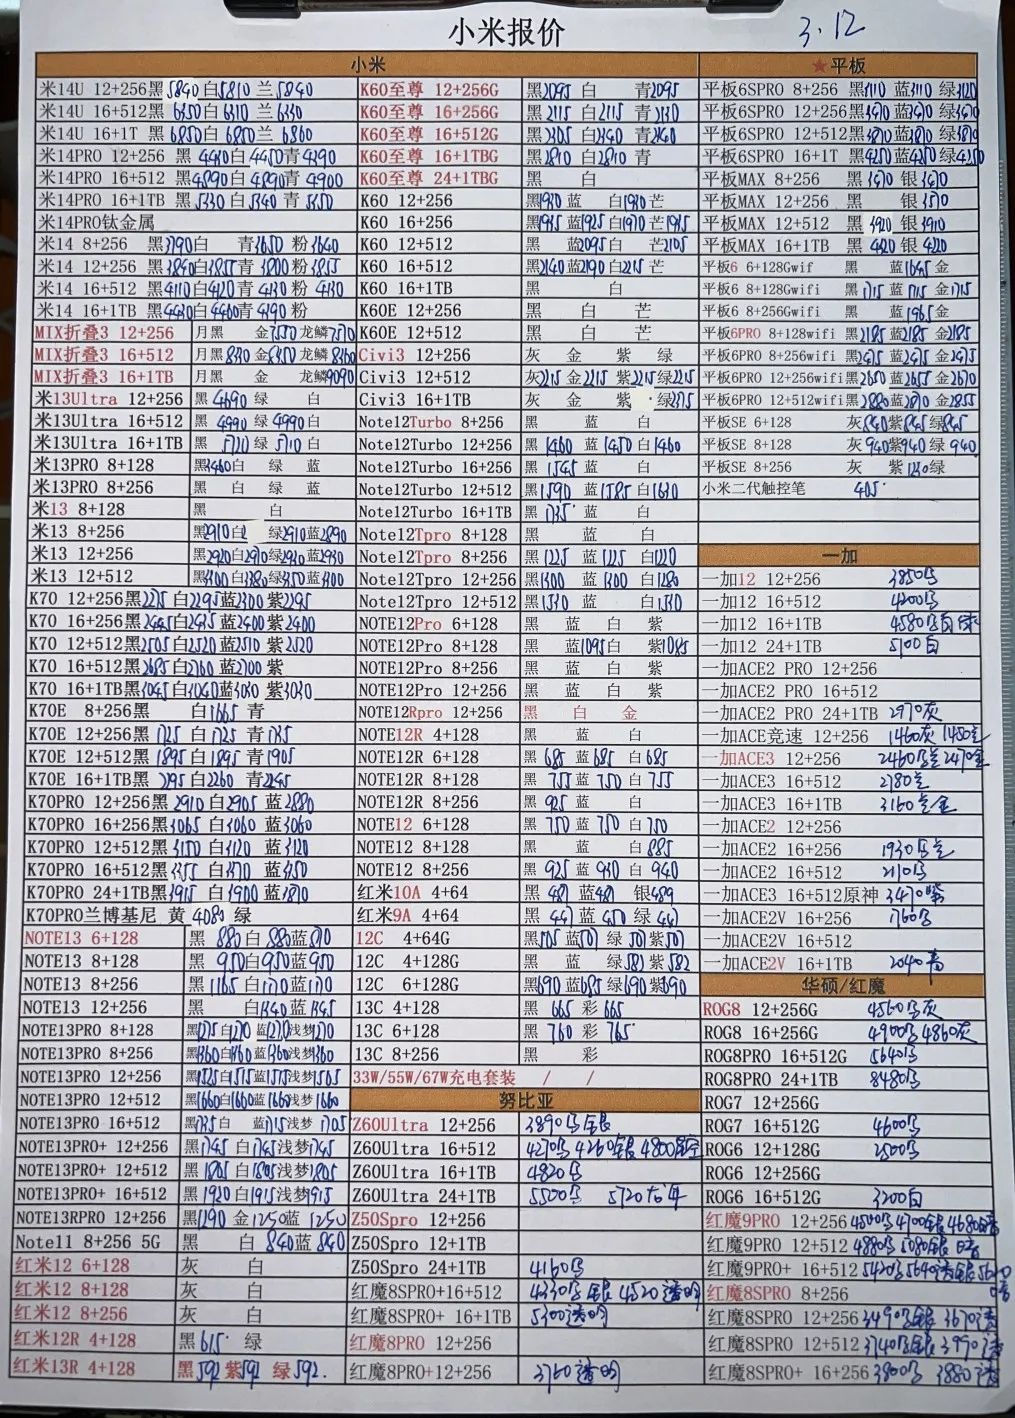 小米报价
3.12
小米
米14U 12+256黑5840白5810 兰5840
米14U 16+512黑6350白6310 兰6330
米14U 16+1T 黑6850白6850兰 6860
米14PRO 12+256 黑 4430白4450青4390
米14PRO 16+512 黑4890白4890青 4900
米14PRO 16+1TB 黑5330白5340青
米14PRO钛金属
米14 8+256 黑3790白 青3650 粉3640
米14 12+256 黑3840白3855青3800粉3855
米14 16+512 黑4110白4120青4130粉4130
米14 16+1TB 黑4430白4460青4190粉
MIX折叠3 12+256 月黑 金7550龙鳞7570
MIX折叠3 16+512 月黑8330金 龙鳞
MIX折叠3 16+1TB 月黑 金 龙鳞9090
米13Ultra 12+256 黑4690绿 白
米13Ultra 16+512 黑4990绿4990白
米13Ultra 16+1TB 黑5710绿5710白
米13PRO 8+128 黑3460白 绿 蓝
米13PRO 8+256 黑 白 绿 蓝
米13 8+128 黑 白
米13 8+256 黑2910白 绿2910蓝2890
米13 12+256 黑2920白2910绿 蓝2930
米13 12+512 黑 白 绿 蓝
K70 12+256黑2275白2295蓝2300紫2295
K70 16+256黑 白 蓝2400紫2400
K70 12+512黑2505白2520蓝2510紫2520
K70 16+512黑2685白 蓝2700紫
K70 16+1TB黑3045白3040蓝3030紫3030
K70E 8+256黑 白1665青
K70E 12+256黑1725白1725青1735
K70E 12+512黑1895白1895青1905
K70E 16+1TB黑 白2260青
K70PRO 12+256黑2910白2905蓝2880
K70PRO 16+256黑3065白3060蓝3060
K70PRO 12+512黑3150白3120蓝3120
K70PRO 16+512黑 白 蓝
K70PRO 24+1TB黑3915白 蓝
K70PRO兰博基尼 黄4080绿
NOTE13 6+128 黑880白880蓝870
NOTE13 8+128 黑950白950蓝950
NOTE13 8+256 黑1165白1170蓝1170
NOTE13 12+256 黑 白1340蓝1345
NOTE13PRO 8+128 黑1275白1270蓝1270浅梦1270
NOTE13PRO 8+256 黑1360白1360蓝1360浅梦1360
NOTE13PRO 12+256 黑 白1515蓝1515浅梦1505
NOTE13PRO 12+512 黑1660白1660蓝1660浅梦1660
NOTE13PRO 16+512 黑1735白 蓝1715浅梦1705
NOTE13PRO+ 12+256 黑1745白1745浅梦1745
NOTE13PRO+ 12+512 黑1805白1805浅梦1805
NOTE13PRO+ 16+512 黑1920白1915浅梦1915
NOTE13RPRO 12+256 黑1290金1250蓝1250
Note11 8+256 5G 黑 白840蓝840
红米12 6+128 灰 白
红米12 8+128 灰 白
红米12 8+256 灰 白
红米12R 4+128 黑615绿
红米13R 4+128 黑592紫592绿592
K60至尊 12+256G 黑2095白 青2095
K60至尊 16+256G 黑2115白2115青2130
K60至尊 16+512G 黑2305白2340青
K60至尊 16+1TBG 黑2810白2810青
K60至尊 24+1TBG 黑 白
K60 12+256 黑1930蓝 白1980芒
K60 16+256 黑 蓝1925白1970芒
K60 12+512 黑 蓝2095白 芒2105
K60 16+512 黑2140蓝2190白2215芒
K60 16+1TB 黑 白
K60E 12+256 黑 白 芒
K60E 12+512 黑 白 芒
Civi3 12+256 灰 金 紫 绿
Civi3 12+512 灰2215金2215紫2215绿2215
Civi3 16+1TB 灰 金 紫 绿
Note12Turbo 8+256 黑 蓝 白
Note12Turbo 12+256 黑1460蓝1450白1460
Note12Turbo 16+256 黑1545蓝 白
Note12Turbo 12+512 黑1590蓝1585白1630
Note12Turbo 16+1TB 黑1735蓝 白
Note12Tpro 8+128 黑 蓝 白
Note12Tpro 8+256 黑1225蓝1225白1220
Note12Tpro 12+256 黑1300蓝1300白1280
Note12Tpro 12+512 黑1330蓝 白1330
NOTE12Pro 6+128 黑 蓝 白 紫
NOTE12Pro 8+128 黑 蓝1095白 紫1085
NOTE12Pro 8+256 黑 蓝 白 紫
NOTE12Pro 12+256 黑 蓝 白 紫
NOTE12Rpro 12+256 黑 白 金
NOTE12R 4+128 黑 蓝 白
NOTE12R 6+128 黑685蓝685白685
NOTE12R 8+128 黑755蓝750白755
NOTE12R 8+256 黑925蓝 白
NOTE12 6+128 黑750蓝750白750
NOTE12 8+128 黑 蓝 白885
NOTE12 8+256 黑925蓝930白940
红米10A 4+64 黑481蓝481银489
红米9A 4+64 黑447蓝450绿447
12C 4+64G 黑505蓝507绿507紫507
12C 4+128G 黑 蓝 绿582紫582
12C 6+128G 黑690蓝685绿690紫690
13C 4+128 黑665彩665
13C 6+128 黑760彩765
13C 8+256 黑 彩
33W/55W/67W充电套装 / /
努比亚
Z60Ultra 12+256 3890马银
Z60Ultra 16+512 4270马4260银4800
Z60Ultra 16+1TB 4820马
Z60Ultra 24+1TB 5500马 5720龙年
Z50Spro 12+256
Z50Spro 12+1TB
Z50Spro 24+1TB 4160马
红魔8SPRO+16+512 4330马银4520透明
红魔8SPRO+ 16+1TB 5300透明
红魔8PRO 12+256
红魔8PRO+12+256 3760透明
★平板
平板6SPRO 8+256 黑3110蓝3110绿3120
平板6SPRO 12+256黑3470蓝3470绿3470
平板6SPRO 12+512黑3870蓝3870绿3870
平板6SPRO 16+1T 黑4250蓝4250绿4250
平板MAX 8+256 黑3470银3470
平板MAX 12+256 黑 银3570
平板MAX 12+512 黑3920银3910
平板MAX 16+1TB 黑4420银4420
平板6 6+128Gwif 黑 蓝1645金
平板6 8+128Gwifi 黑1715蓝1715金1715
平板6 8+256Gwifi 黑 蓝1965金
平板6PRO 8+128wifi 黑2185蓝2185金2185
平板6PRO 8+256wifi 黑2475蓝2475金2475
平板6PRO 12+256wifi黑2650蓝2655金2670
平板6PRO 12+512wifi黑2880蓝2870金2855
平板SE 6+128 灰840紫845绿845
平板SE 8+128 灰940紫940绿940
平板SE 8+256 灰 紫 绿
小米二代触控笔 405
一加
一加12 12+256 3850马
一加12 16+512 4200马
一加12 16+1TB 4580马白绿
一加12 24+1TB 5100白
一加ACE2 PRO 12+256
一加ACE2 PRO 16+512
一加ACE2 PRO 24+1TB 2970灰
一加ACE竞速 12+256 1460灰
一加ACE3 12+256 2460马兰2470金
一加ACE3 16+512 2780兰
一加ACE3 16+1TB 3160兰金
一加ACE2 12+256
一加ACE2 16+256 1930马兰
一加ACE2 16+512 2110马
一加ACE3 16+512原神 3470紫
一加ACE2V 16+256 1760马
一加ACE2V 16+512
一加ACE2V 16+1TB 2040青
华硕/红魔
ROG8 12+256G 4560马灰
ROG8 16+256G 4900马4860灰
ROG8PRO 16+512G 5640马
ROG8PRO 24+1TB 8480马
ROG7 12+256G
ROG7 16+512G 4600马
ROG6 12+128G 2500马
ROG6 12+256G
ROG6 16+512G 3200白
红魔9PRO 12+256 4500马4700银4680
红魔9PRO 12+512 4880马5080银
红魔9PRO+ 16+512 5420马5640透银
红魔8SPRO 8+256
红魔8SPRO 12+256 3490马银3670透
红魔8SPRO 12+512 3740马银3970透
红魔8SPRO+ 16+256 3800马 3880透